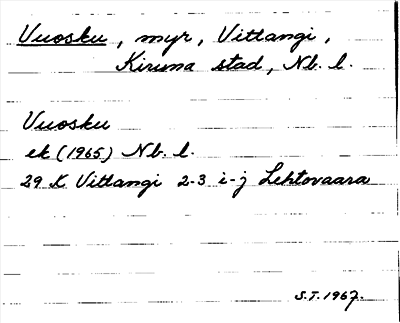 Vuosku, myr, Vittangi,
Kiruna stad, Nb. l.
Vuosku
ek (1965) Nb. l.
29 K Vittangi 2-3 i-j Lehtovaara
S.T. 1967.